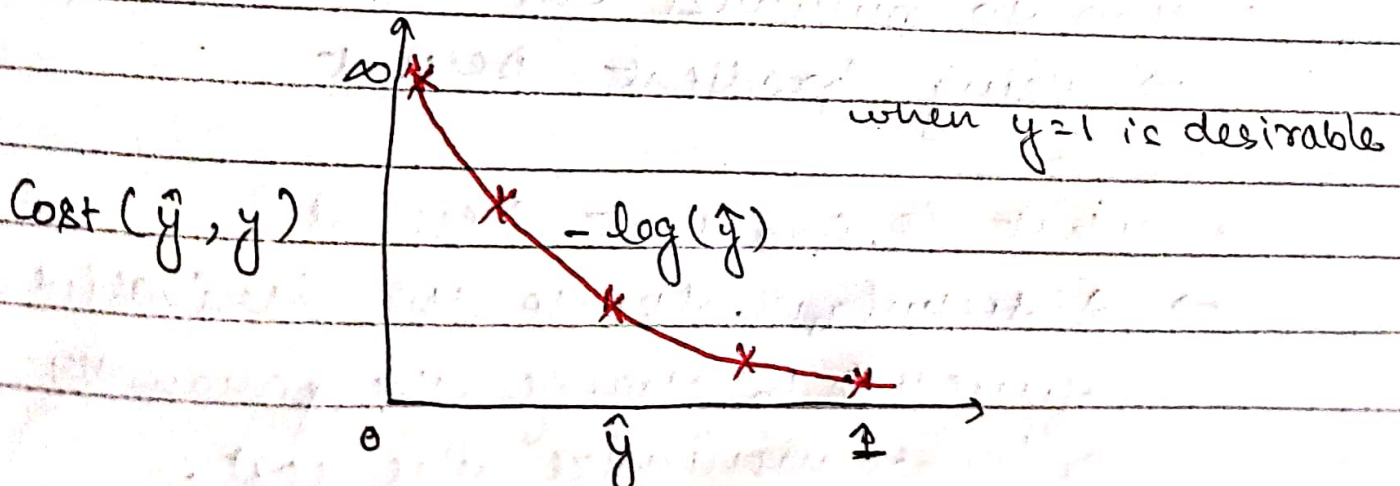 ∞
when y=1 is desirable
Cost (ŷ, y)
- log(ŷ)
0 ŷ 1